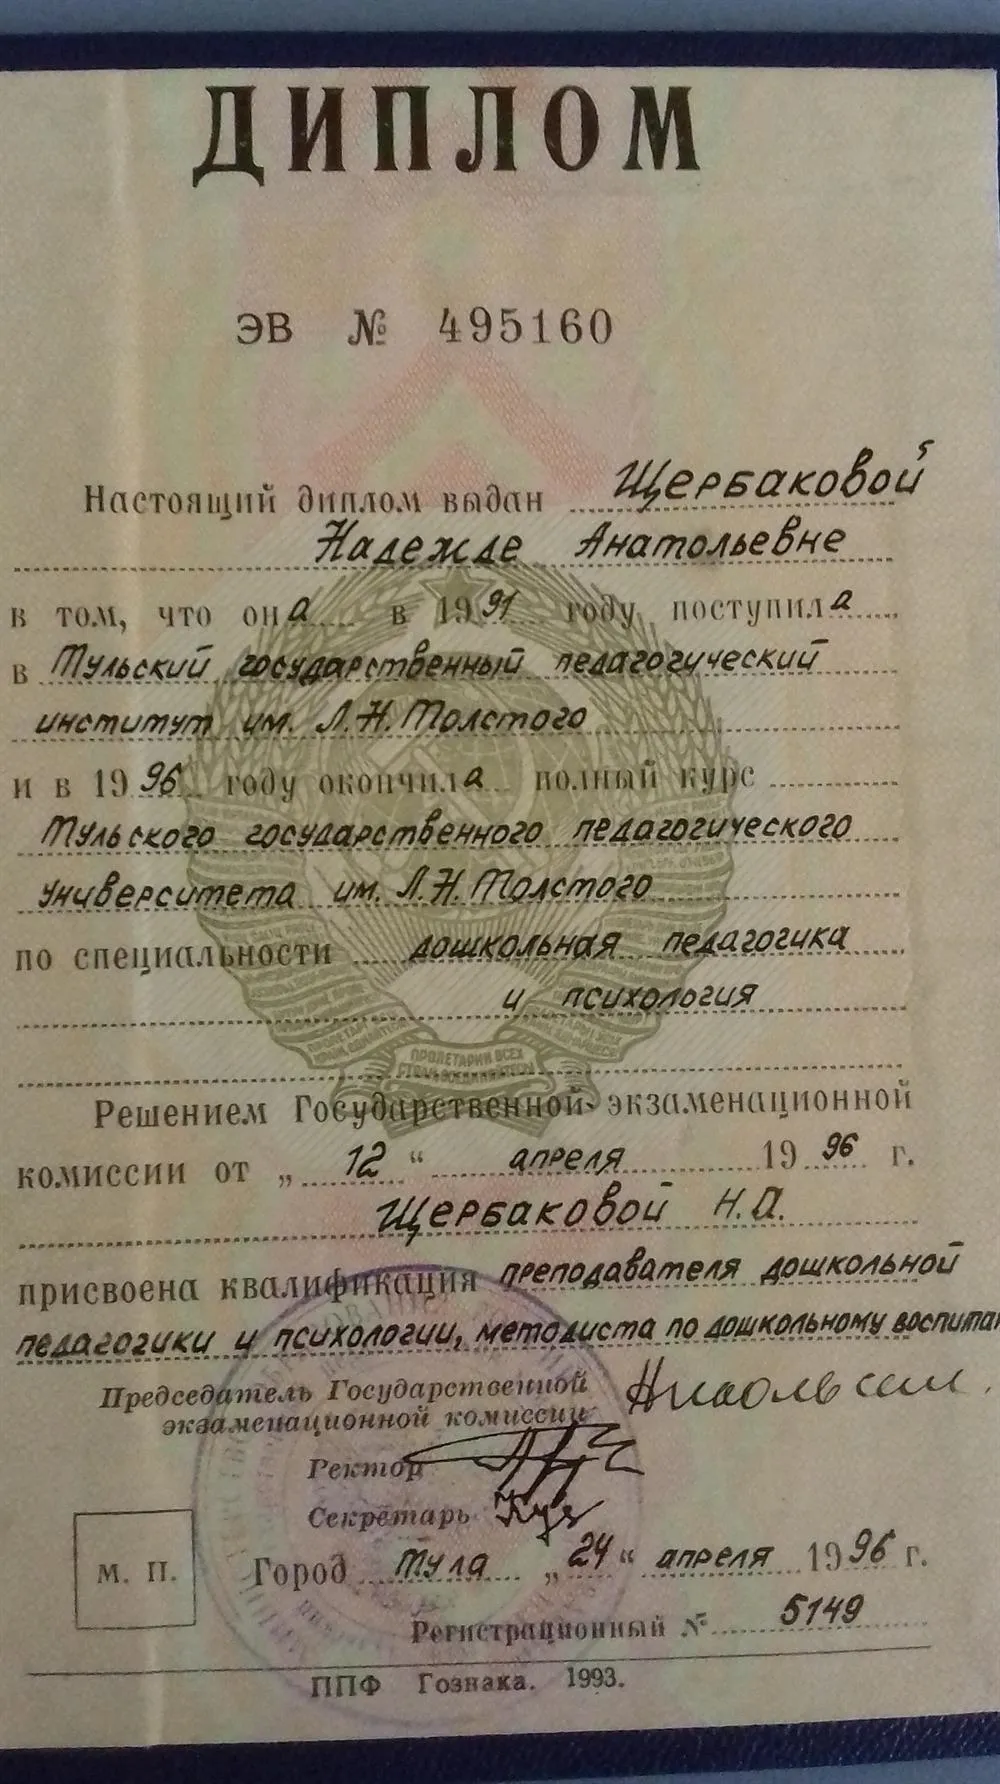 ДИПЛОМ
ЭВ № 495160
Настоящий диплом выдан Щербаковой
Надежде Анатольевне
в том, что она в 1991 году поступила
в Тульский государственный педагогический
институт им. Л.Н. Толстого
и в 1996 году окончила полный курс
Тульского государственного педагогического
университета им. Л.Н. Толстого
по специальности дошкольная педагогика
и психология
ПРОЛЕТАРИИ ВСЕХ
СТРАН, СОЕДИНЯЙТЕСЬ!
Решением Государственной экзаменационной
комиссии от „ 12 “ апреля 1996 г.
Щербаковой Н.А.
присвоена квалификация преподавателя дошкольной
педагогики и психологии, методиста по дошкольному воспитан
Председатель Государственной
экзаменационной комиссии
Ректор
Секретарь
М. П. Город Тула „ 24 “ апреля 1996 г.
Регистрационный № 5149
ППФ Гознака. 1993.